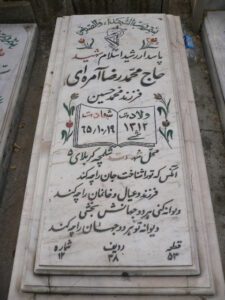 پاسدار رشید اسلام شهید
حاج محمدرضا آمره‌ای
فرزند محمدحسین
ولادت شهادت
۱۳۱۲ ۶۵/۱۰/۱۹
محل شهادت شلمچه کربلای ۵
آنکس که تو را شناخت جان را چه کند
فرزند و عیال و خانمان را چه کند
دیوانه کنی هر دو جهانش بخشی
دیوانه تو هر دو جهان را چه کند
قطعه ردیف شماره
۵۳ ۳۸ ۱۲